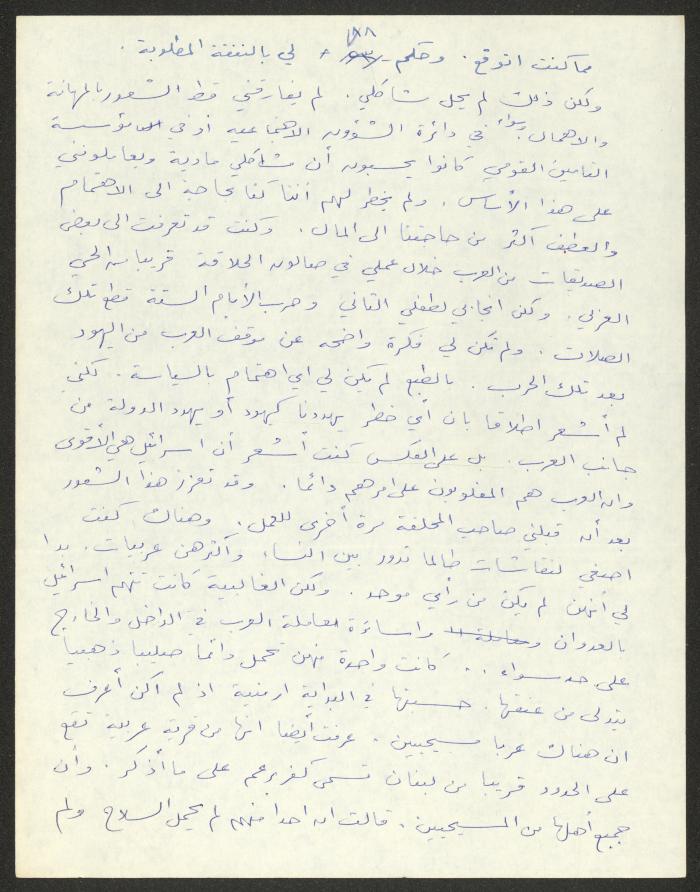 ١٨٨
مما كنت اتوقع. وحكم لي بالنفقة المطلوبة.
ولكن ذلك لم يحل مشاكلي. لم يفارقني قط الشعور بالمهانة
والاهمال سواء في دائرة الشؤون الاجتماعيه أو في مؤسسة
التامين القومي كانوا يحسبون أن مشاكلي مادية ويعاملونني
على هذا الأساس. ولم يخطر لهم أننا كنا بحاجة الى الاهتمام
والعطف أكثر من حاجتنا الى المال. وكنت قد تعرفت الى بعض
الصديقات من العرب خلال عملي في صالون الحلاقة قريبا من الحي
العربي. ولكن انجابي لطفلي الثاني وحرب الأيام الستة قطع تلك
الصلات. ولم تكن لي فكرة واضحه عن موقف العرب من اليهود
بعد تلك الحرب. بالطبع لم يكن لي اي اهتمام بالسياسة. لكني
لم أشعر اطلاقا بان أي خطر يهددنا كيهود أو يهدد الدولة من
جانب العرب. بل على العكس كنت أشعر أن اسرائيل هي الأقوى
وان العرب هم المغلوبون على امرهم دائما. وقد تعزز هذا الشعور
بعد أن قبلني صاحب المحلقة مرة أخرى للعمل. وهناك كنت
اصغي لنقاشات طالما تدور بين النساء وأكثرهن عربيات. بدا
لي أنهن لم يكن من رأي موحد. ولكن الغالبية كانت تتهم اسرائيل
بالعدوان واساءة معاملة العرب في الداخل والخارج
على حد سواء.. كانت واحدة منهن تحمل دائما صليبا ذهبيا
يتدلى من عنقها. حسبتها في البداية ارمنية اذ لم اكن أعرف
ان هناك عربا مسيحيين. عرفت أيضا انها من قرية عربية تقع
على الحدود قريبا من لبنان تسمى كفر برعم على ما أذكر. وأن
جميع أهلها من المسيحيين. قالت ان احدا منهم لم يحمل السلاح ولم